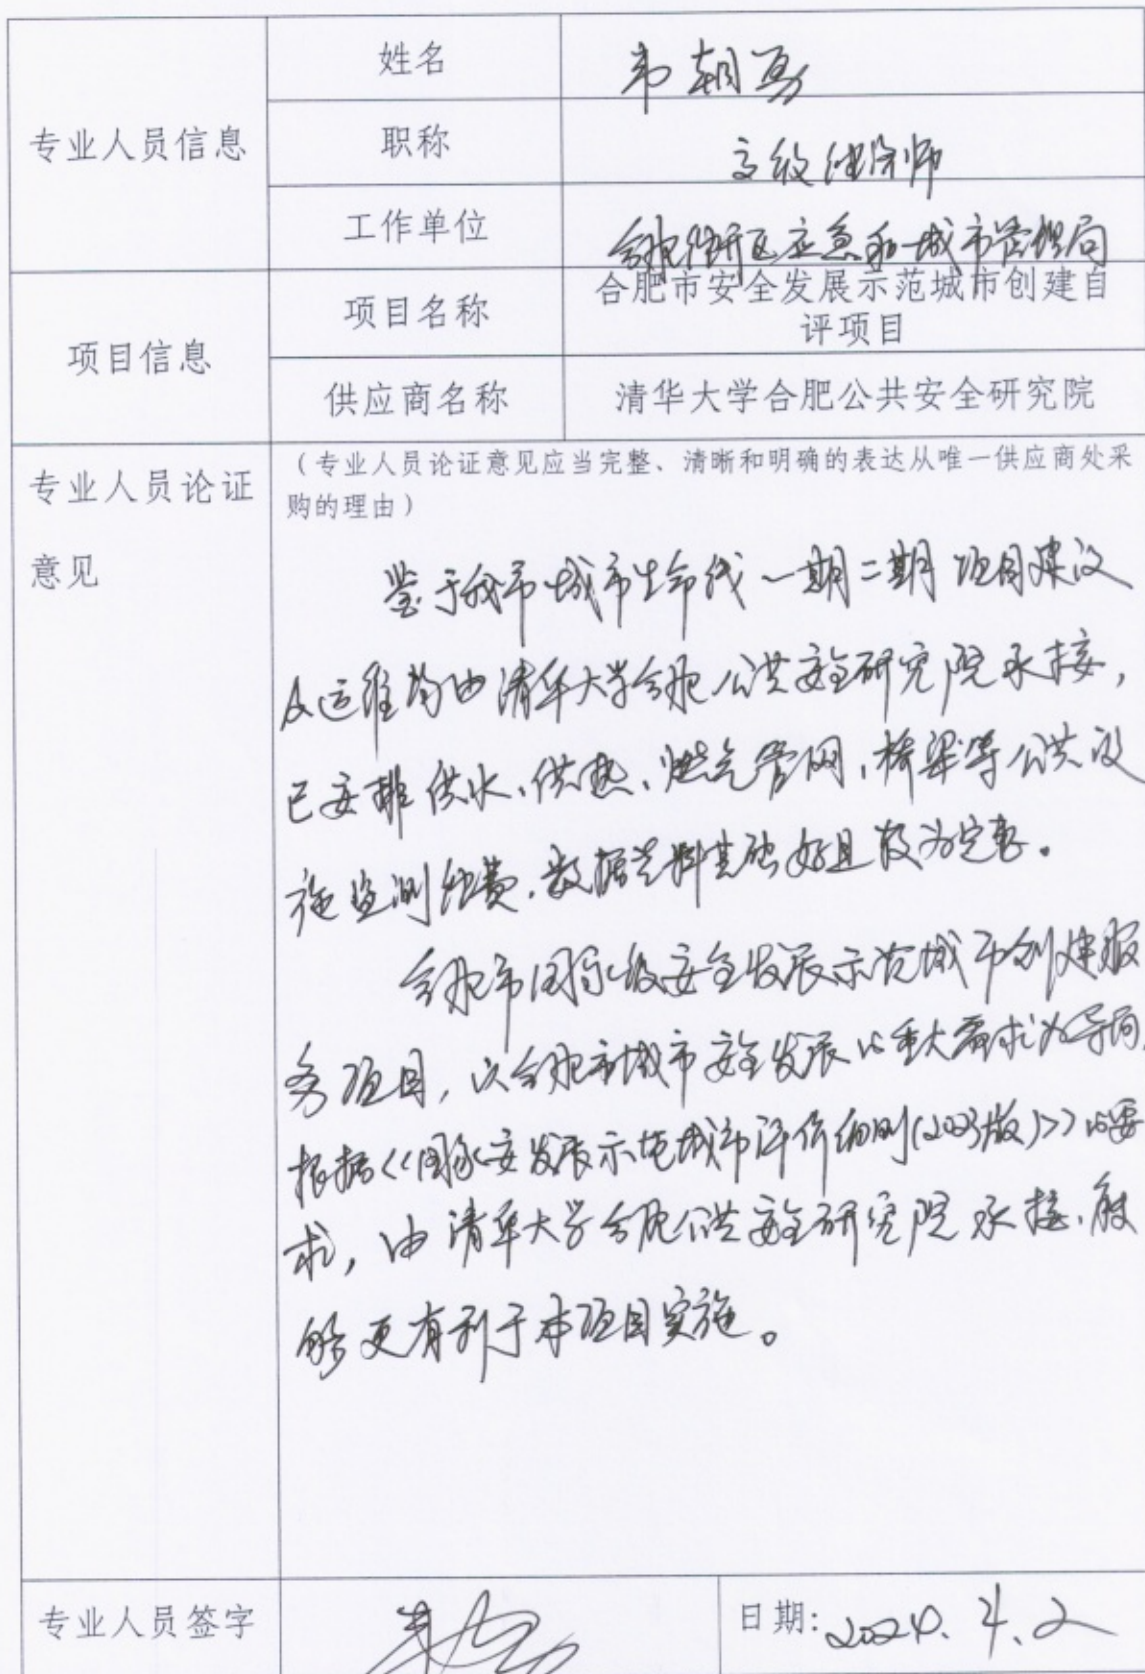 专业人员信息
姓名
韦朝勇
职称
高级经济师
工作单位
合肥经开区应急和城市管理局
项目信息
项目名称
合肥市安全发展示范城市创建自
评项目
供应商名称
清华大学合肥公共安全研究院
专业人员论证
意见
(专业人员论证意见应当完整、清晰和明确的表达从唯一供应商处采
购的理由)
鉴于我市城市生命线一期二期项目建设
及运维均由清华大学合肥公共安全研究院承接,
已安排供水、供热、燃气管网、桥梁等公共设
施监测经费,数据资料基础好且较为完整。
合肥市国家级安全发展示范城市创建服
务项目,以合肥市城市安全发展的重大需求为导向,
根据<<国家安发展示范城市评价细则(2023版)>>的要
求,由清华大学合肥公共安全研究院承接,
能够更有利于本项目实施。
专业人员签字
日期:2024.4.2